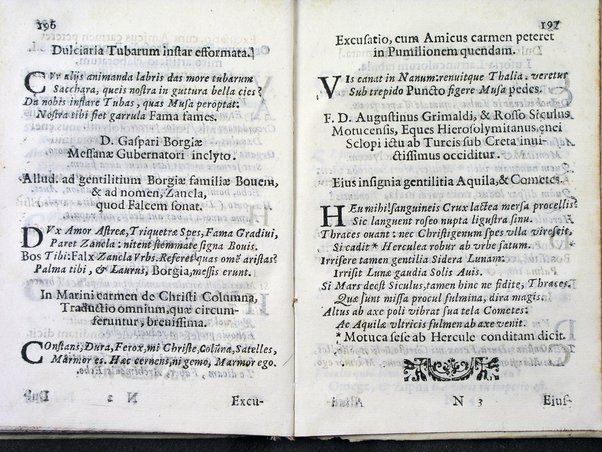 196
Dulciaria Tubarum instar efformata.
CVr alijs animanda labris das more tubarum
Sacchara, queis nostra in guttura bella cies?
Da nobis inflare Tubas, quas Musa peroptat:
Nostra tibi fiet garrula Fama fames.
D. Gaspari Borgiæ
Messanæ Gubernatori inclyto.
Allud. ad gentilitium Borgiæ familiæ Bouem,
& ad nomen, Zancla,
quod Falcem sonat.
DVx Amor Astreæ, Triquetræ Spes, Fama Gradiui,
Paret Zancla: nitent stemmate signa Bouis.
Bos Tibi: Falx Zancla Vrbs. Referet quas omẽ aristas?
Palma tibi, & Laurus, Borgia, messis erunt.
In Marini carmen de Christi Columna,
Traductio omnium, quæ circum-
feruntur, breuissima.
COnstans, Dura, Ferox, mi Christe, Colũna, Satelles,
Marmor es. Hæc cernens, ni gemo, Marmor ego.
N 2
Excu-
197
Excusatio, cum Amicus carmen peteret
in Pumilionem quendam.
VIs canat in Nanum: renuitque Thalia. veretur
Sub trepido Puncto figere Musa pedes.
F. D. Augustinus Grimaldi, & Rosso Siculus
Motucensis, Eques Hierosolymitanus, enei
Sclopi ictu ab Turcis sub Creta inui-
ctissimus occiditur.
Eius insignia gentilitia Aquila, & Cometes.
HEu mihi! sanguineis Crux lactea mersa procellis?
Sic languent roseo nupta ligustra sinu.
Thraces ouant: nec Christigenum spes vlla vireseit,
Si cadit * Herculea robur ab vrbe satum.
Irrisere tamen gentilia Sidera Lunam:
Irrisit Lunæ gaudia Solis Auis.
Si Mars deest Siculus, tamen hinc ne fidite, Thraces.
Quæ sunt missa procul fulmina, dira magis.
Altus ab axe poli vibrat sua tela Cometes:
Ac Aquilæ vltricis fulmen ab axe venit.
* Motuca sese ab Hercule conditam dicit.
N 3
Eius-